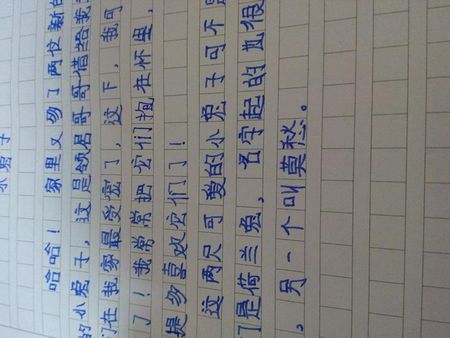 小兔子
哈哈！家里又多了两位新的
的小兔子，这是君哥哥借给我
们在我家最受宠了，这下，我可
了！我常常把它们抱在怀里，
提多喜欢它们了！
这两只可爱的小兔子可不
们是荷兰兔，名字起的也很
，另一个叫莫愁。